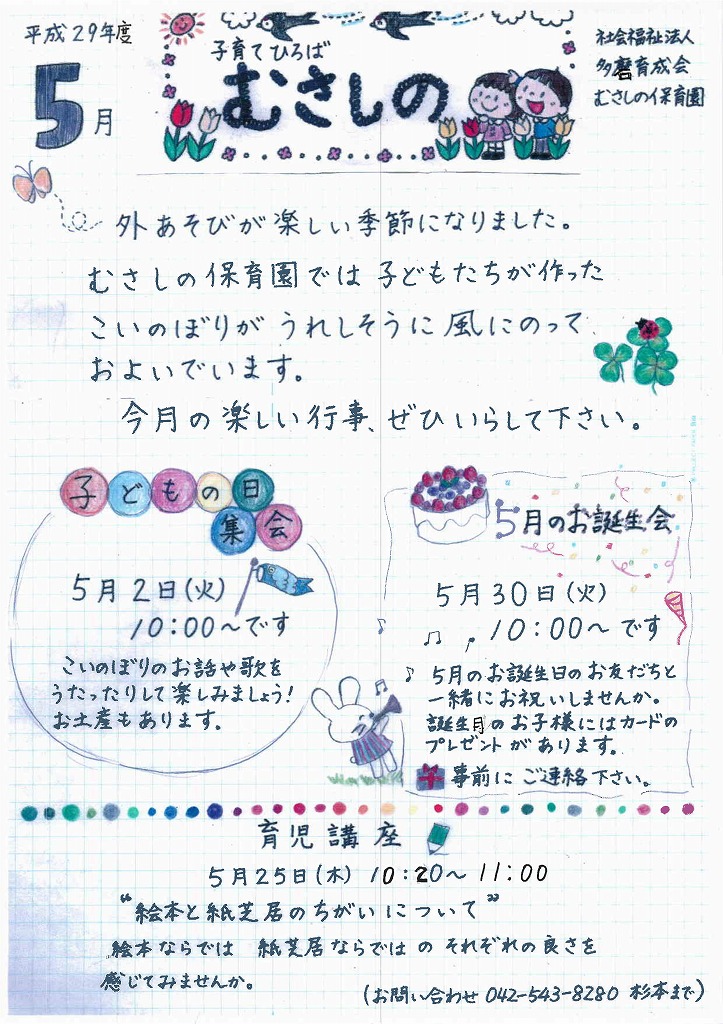 平成29年度
5月
子育てひろば
むさしの
社会福祉法人
多磨育成会
むさしの保育園
外あそびが楽しい季節になりました。
むさしの保育園では子どもたちが作った
こいのぼりがうれしそうに風にのって
およいでいます。
今月の楽しい行事、ぜひいらして下さい。
子どもの日
集会
5月2日(火)
10:00～です
こいのぼりのお話や歌を
うたったりして楽しみましょう!
お土産もあります。
5月のお誕生会
5月30日(火)
10:00～です
5月のお誕生日のお友だちと
一緒にお祝いしませんか。
誕生月のお子様にはカードの
プレゼントがあります。
事前にご連絡下さい。
育児講座
5月25日(木) 10:20～11:00
“絵本と紙芝居のちがいについて”
絵本ならでは 紙芝居ならではのそれぞれの良さを
感じてみませんか。
(お問い合わせ 042-543-8280 杉本まで)